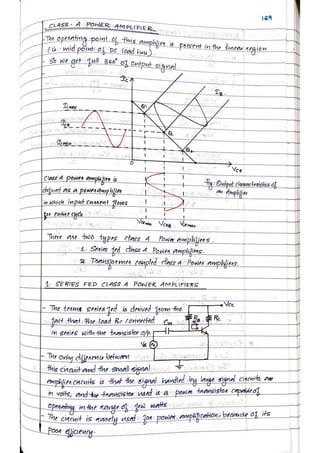 169
CLASS - A POWER AMPLIFIER
- The operating point of this amplifier is present in the linear region
(i.e. mid point of DC load line)
- So we get full 360° of output signal.
Ic
IB
Q1
Q
Q2
0
VCE
Class A power amplifier is
defined as a power amplifier
in which input current flows
for entire cycle
Fig: Output characteristics of
an Amplifier
Vcemin VCEQ Vcemax
There are two types class A Power amplifiers.
1. Series fed class A Power amplifiers.
2. Transformer coupled class A Power amplifiers.
1. SERIES FED CLASS A POWER AMPLIFIERS
- The term series fed is derived from the
fact that the load Rc connected
in series with the transistor o/p.
Vcc
RB
Rc
Cin
Vs
- The only difference between
this circuit and the small signal
amplifier circuits is that the signal handled by large signal circuits are
in volts, and transistor used is a power transistor capable of
operating in the range of few watts.
- The circuit is rarely used for power amplification because of its
poor efficiency.